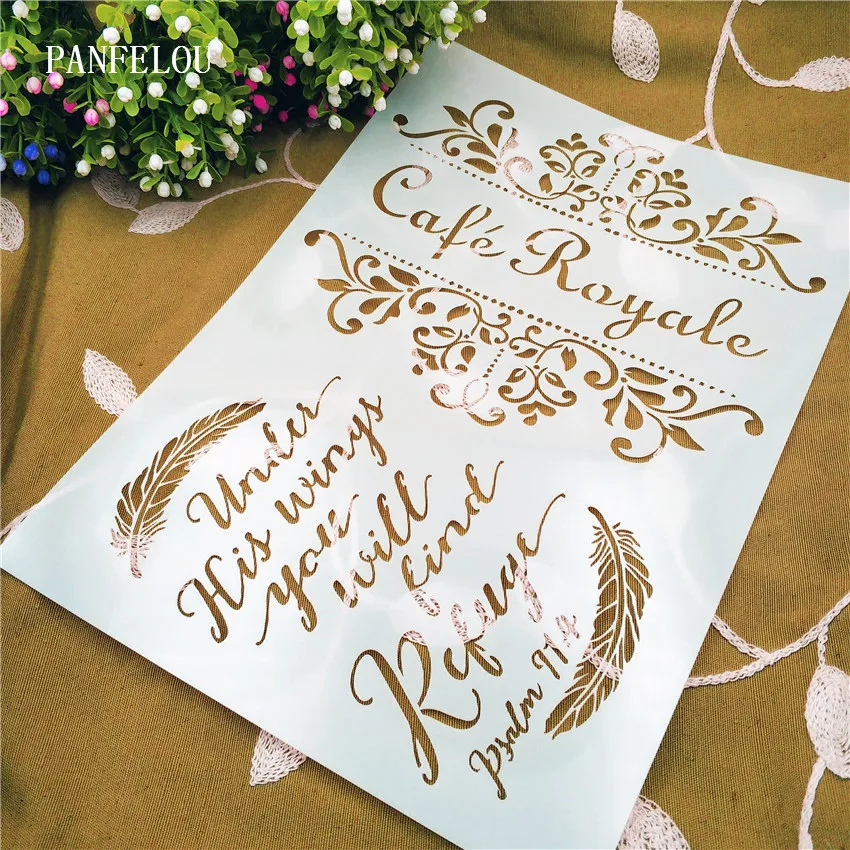 PANFELOU
Café Royale
Under
His wings
you will
find
Refuge
Psalm 91:4